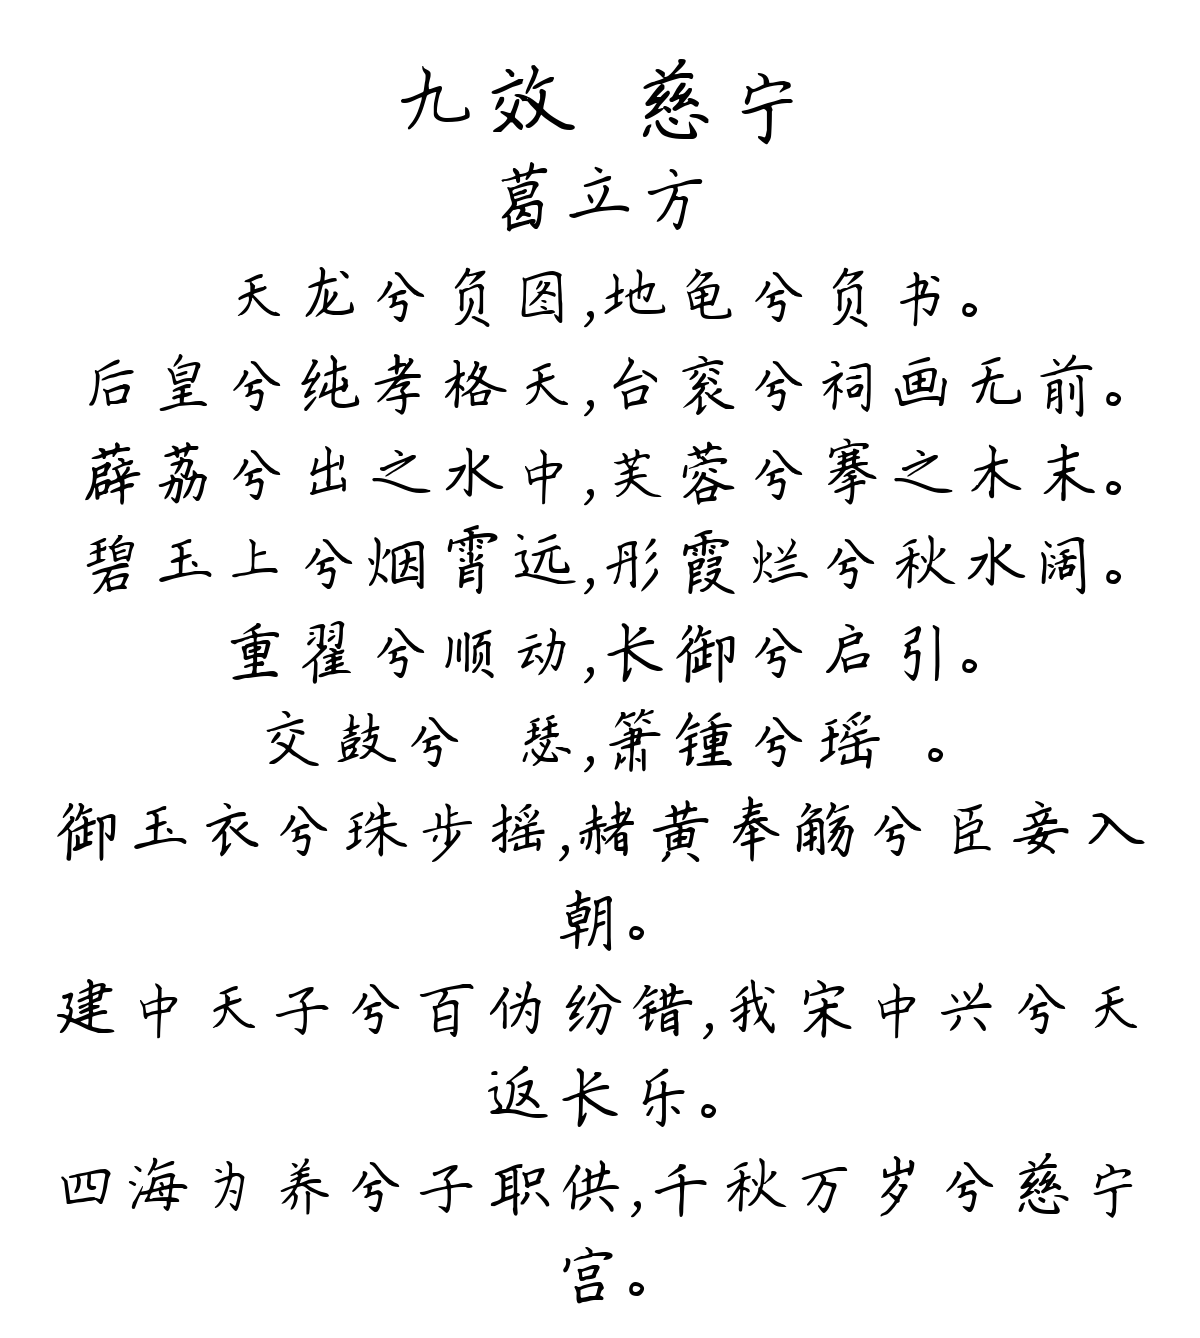 九效 慈宁
葛立方
天龙兮负图,地龟兮负书。
后皇兮纯孝格天,台衮兮祠画无前。
薜荔兮出之水中,芙蓉兮搴之木末。
碧玉上兮烟霄远,彤霞烂兮秋水阔。
重翟兮顺动,长御兮启引。
交鼓兮 瑟,箫锺兮瑶 。
御玉衣兮珠步摇,赭黄奉觞兮臣妾入
朝。
建中天子兮百伪纷错,我宋中兴兮天
返长乐。
四海为养兮子职供,千秋万岁兮慈宁
宫。